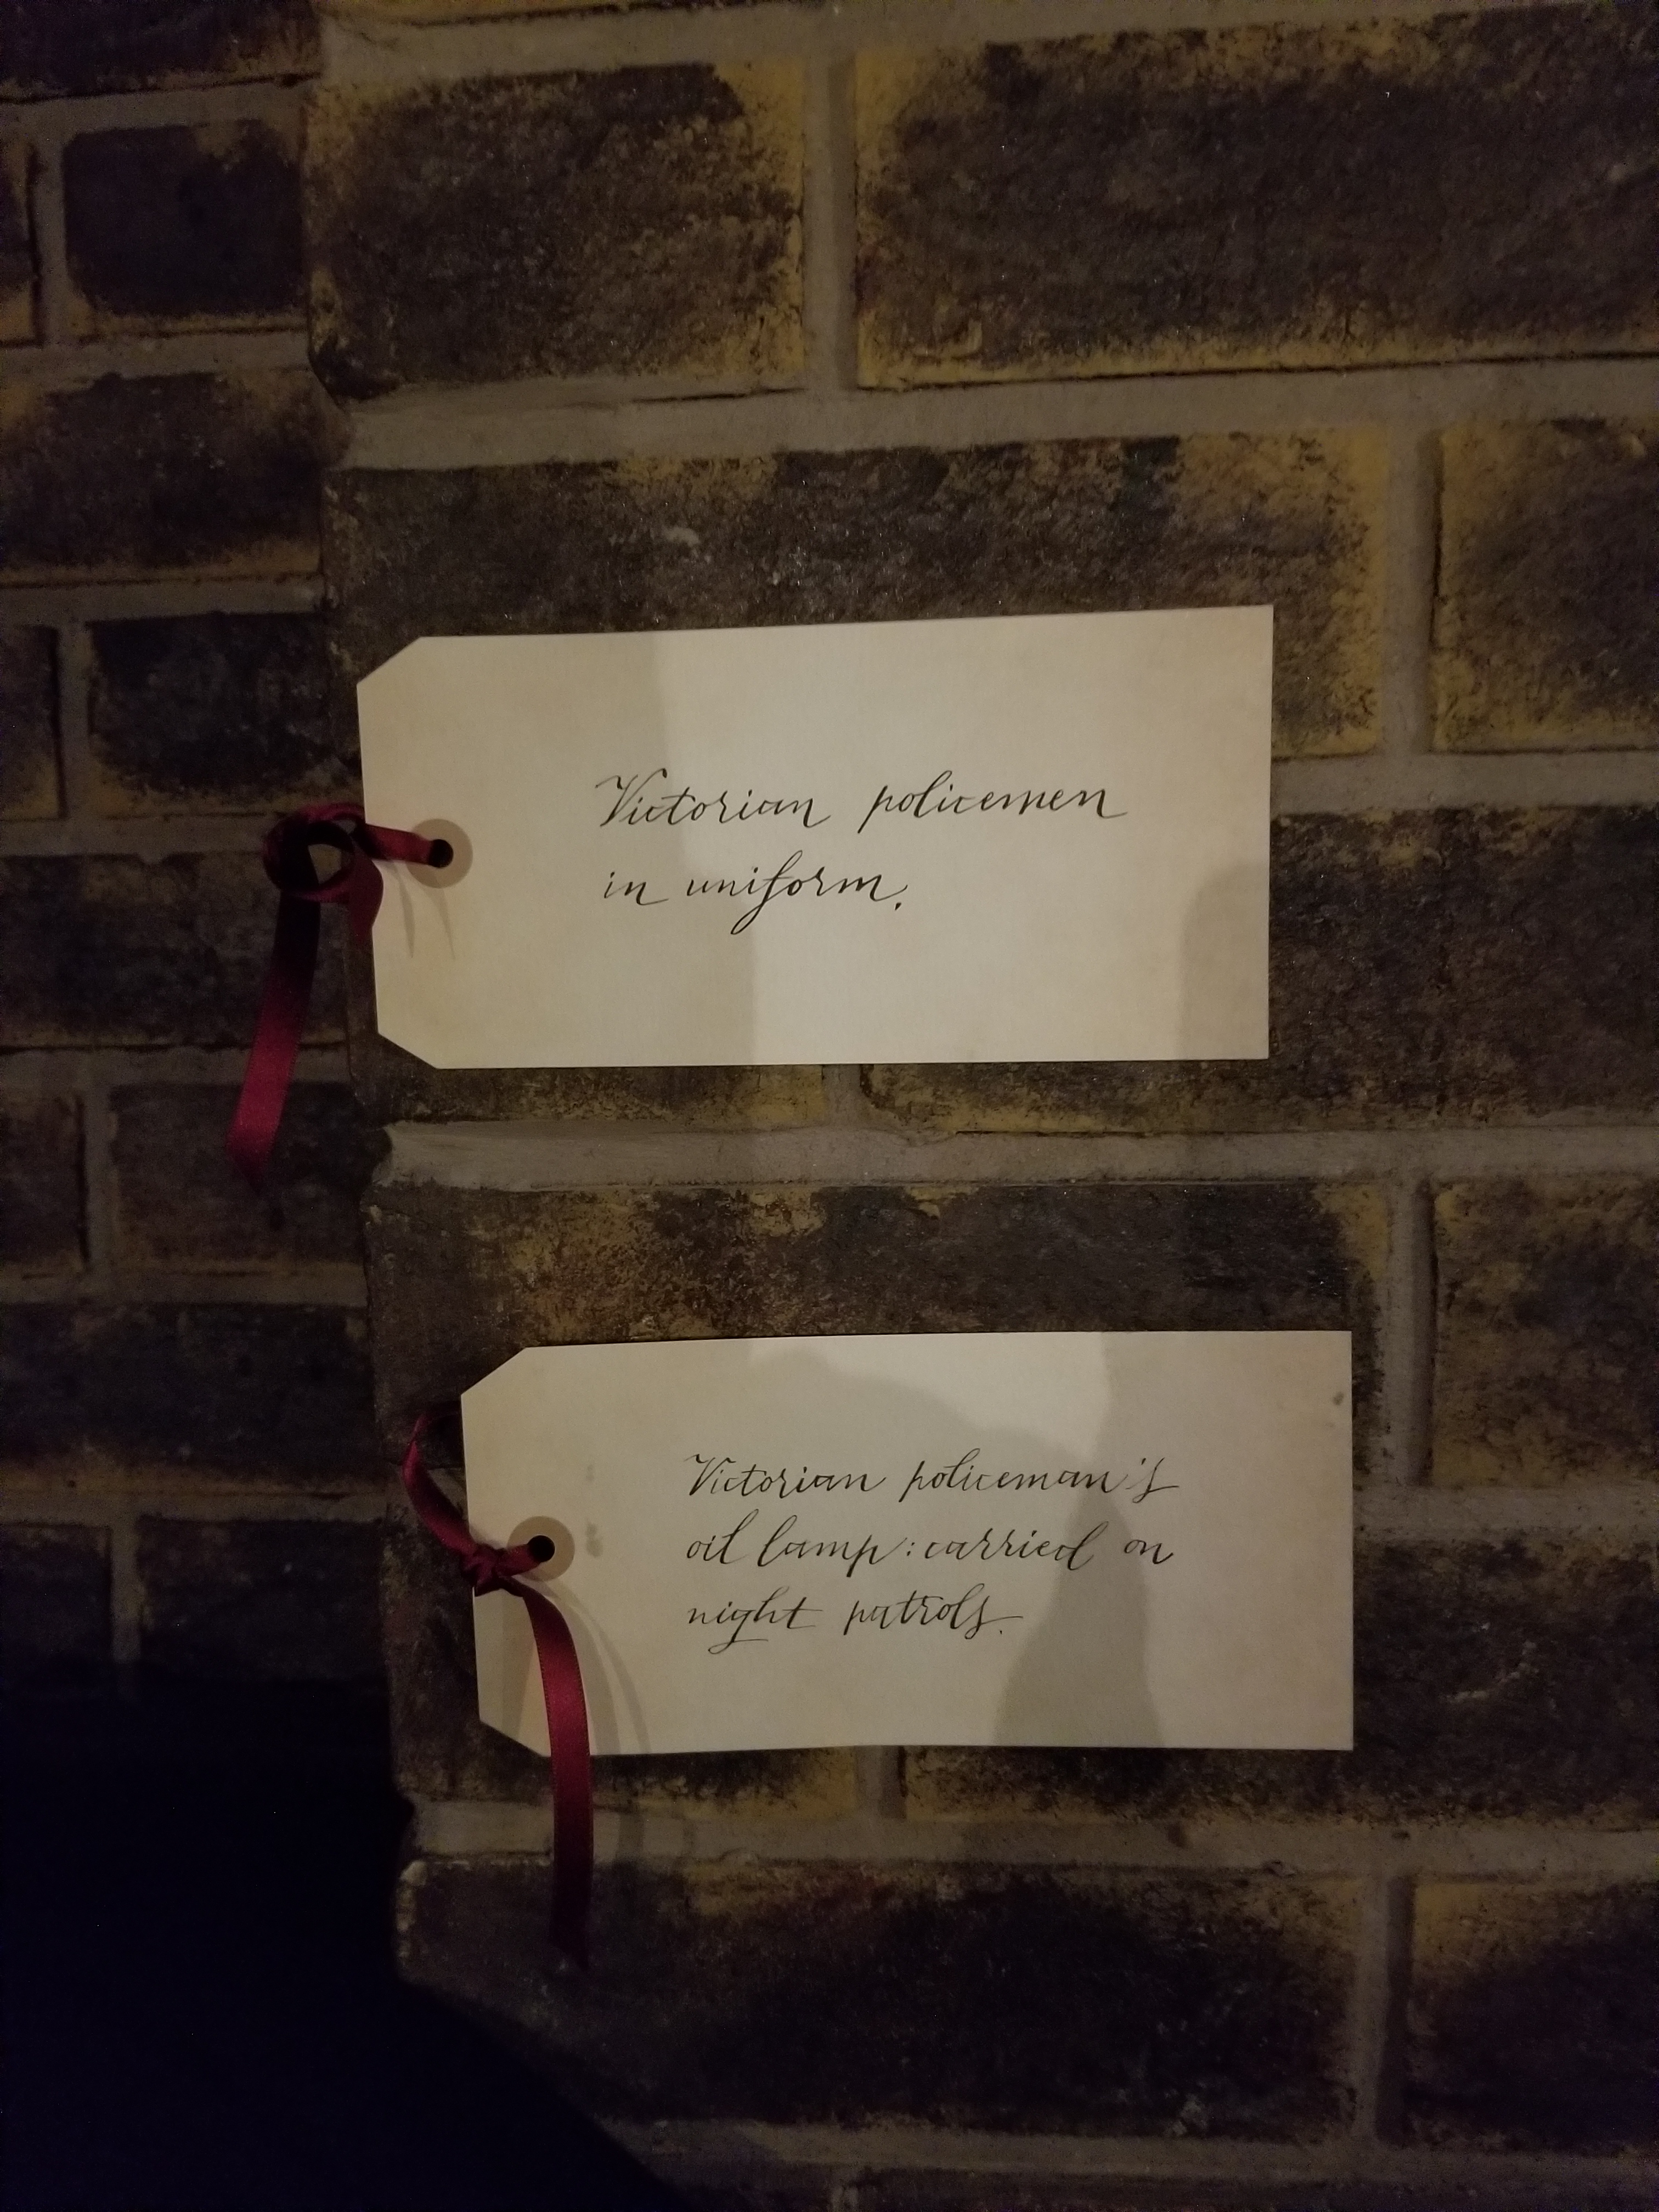 Victorian policemen
in uniform.
Victorian policeman's
oil lamp: carried on
night patrols.